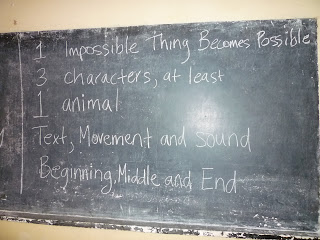 1 Impossible Thing Becomes Possible
3 characters, at least
1 animal
Text, Movement and sound
Beginning, Middle and End